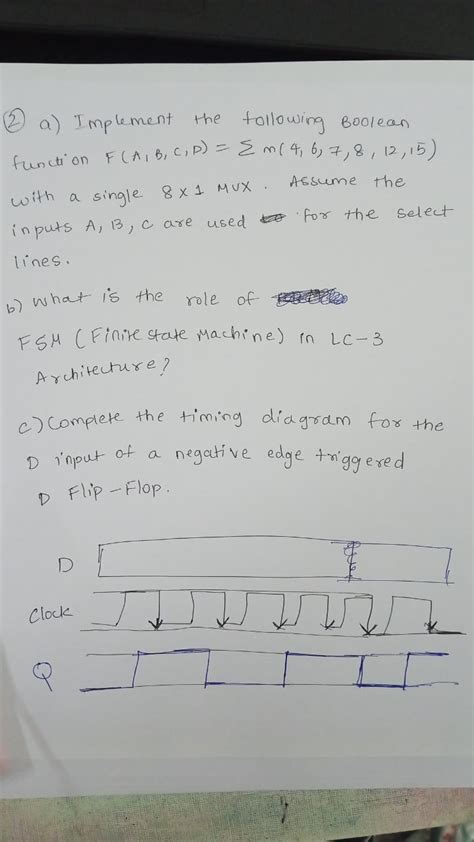 ② a) Implement the following Boolean
function F(A, B, C, D) = Σ m(4, 6, 7, 8, 12, 15)
with a single 8x1 MUX. Assume the
inputs A, B, C are used for the select
lines.
b) What is the role of
FSM (Finite State Machine) in LC-3
Architecture?
c) Complete the timing diagram for the
D input of a negative edge triggered
D Flip-Flop.
D
Clock
Q